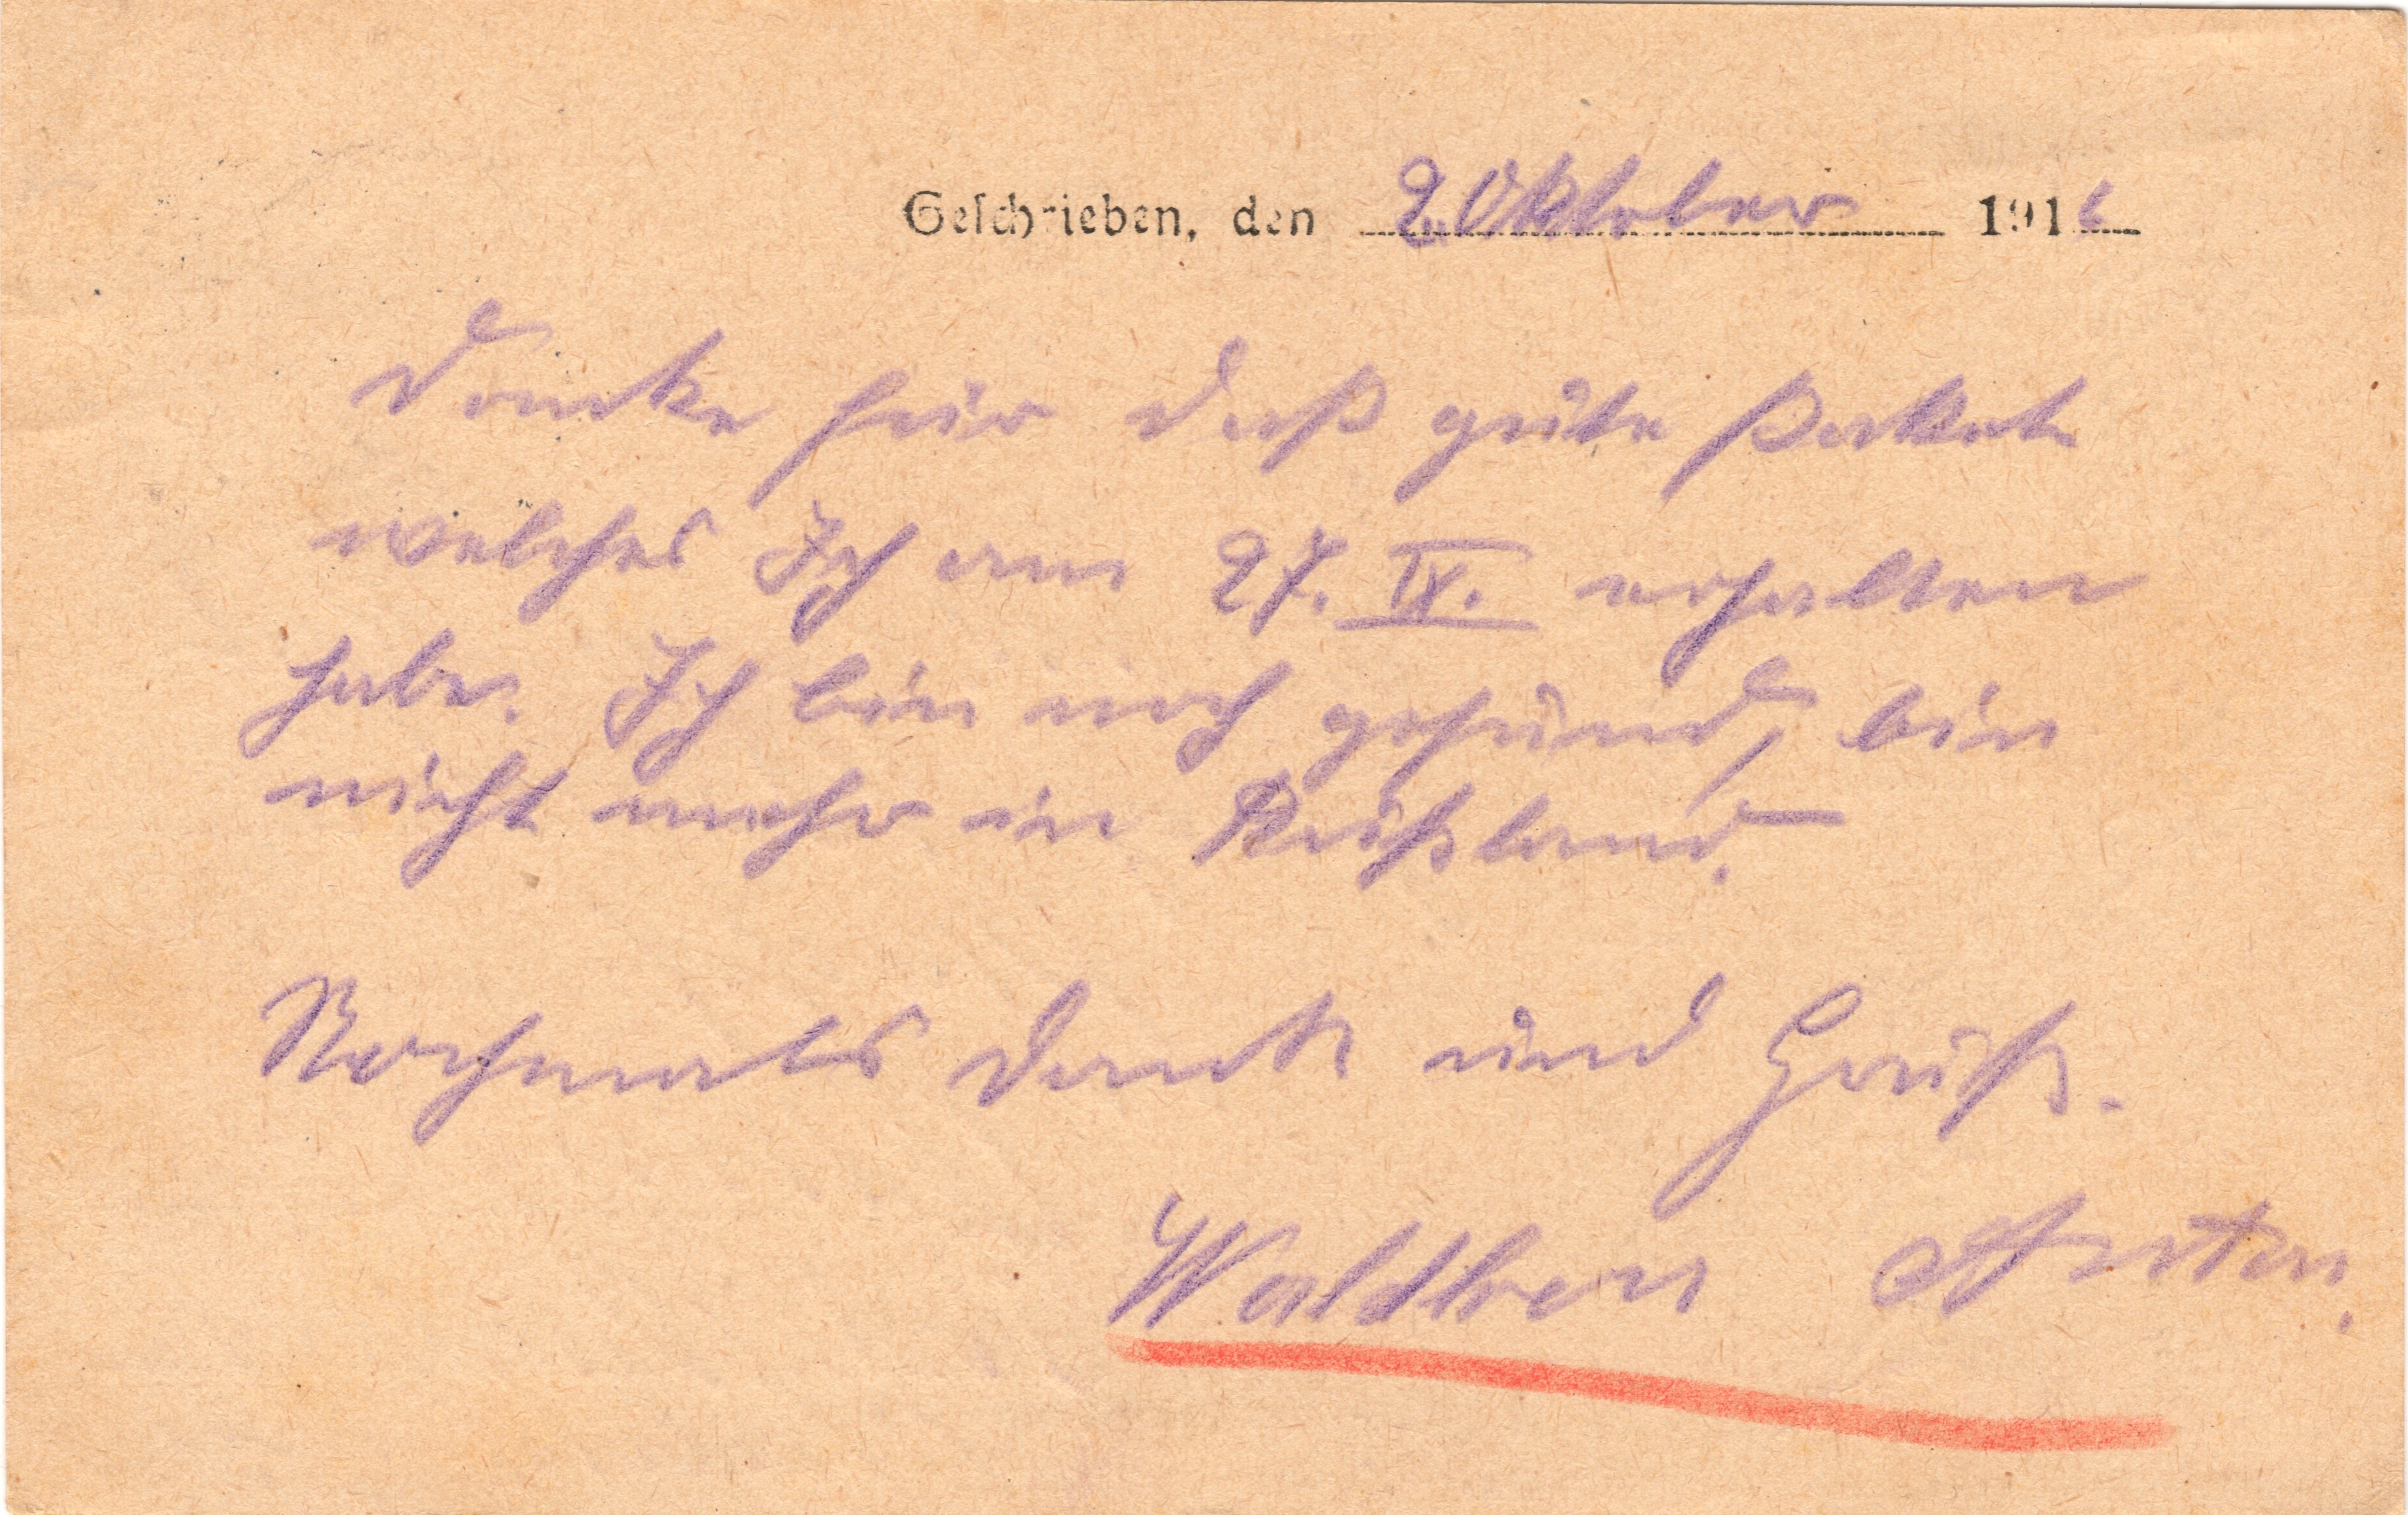 Geschrieben, den 2. Oktober 1916
Danke für daß gute Packet
welches Ich am 27. IX. erhalten
habe. Ich bin noch gesund, bin
nicht mehr in Rußland.
Nochmals Dank und Gruß.
Anton.